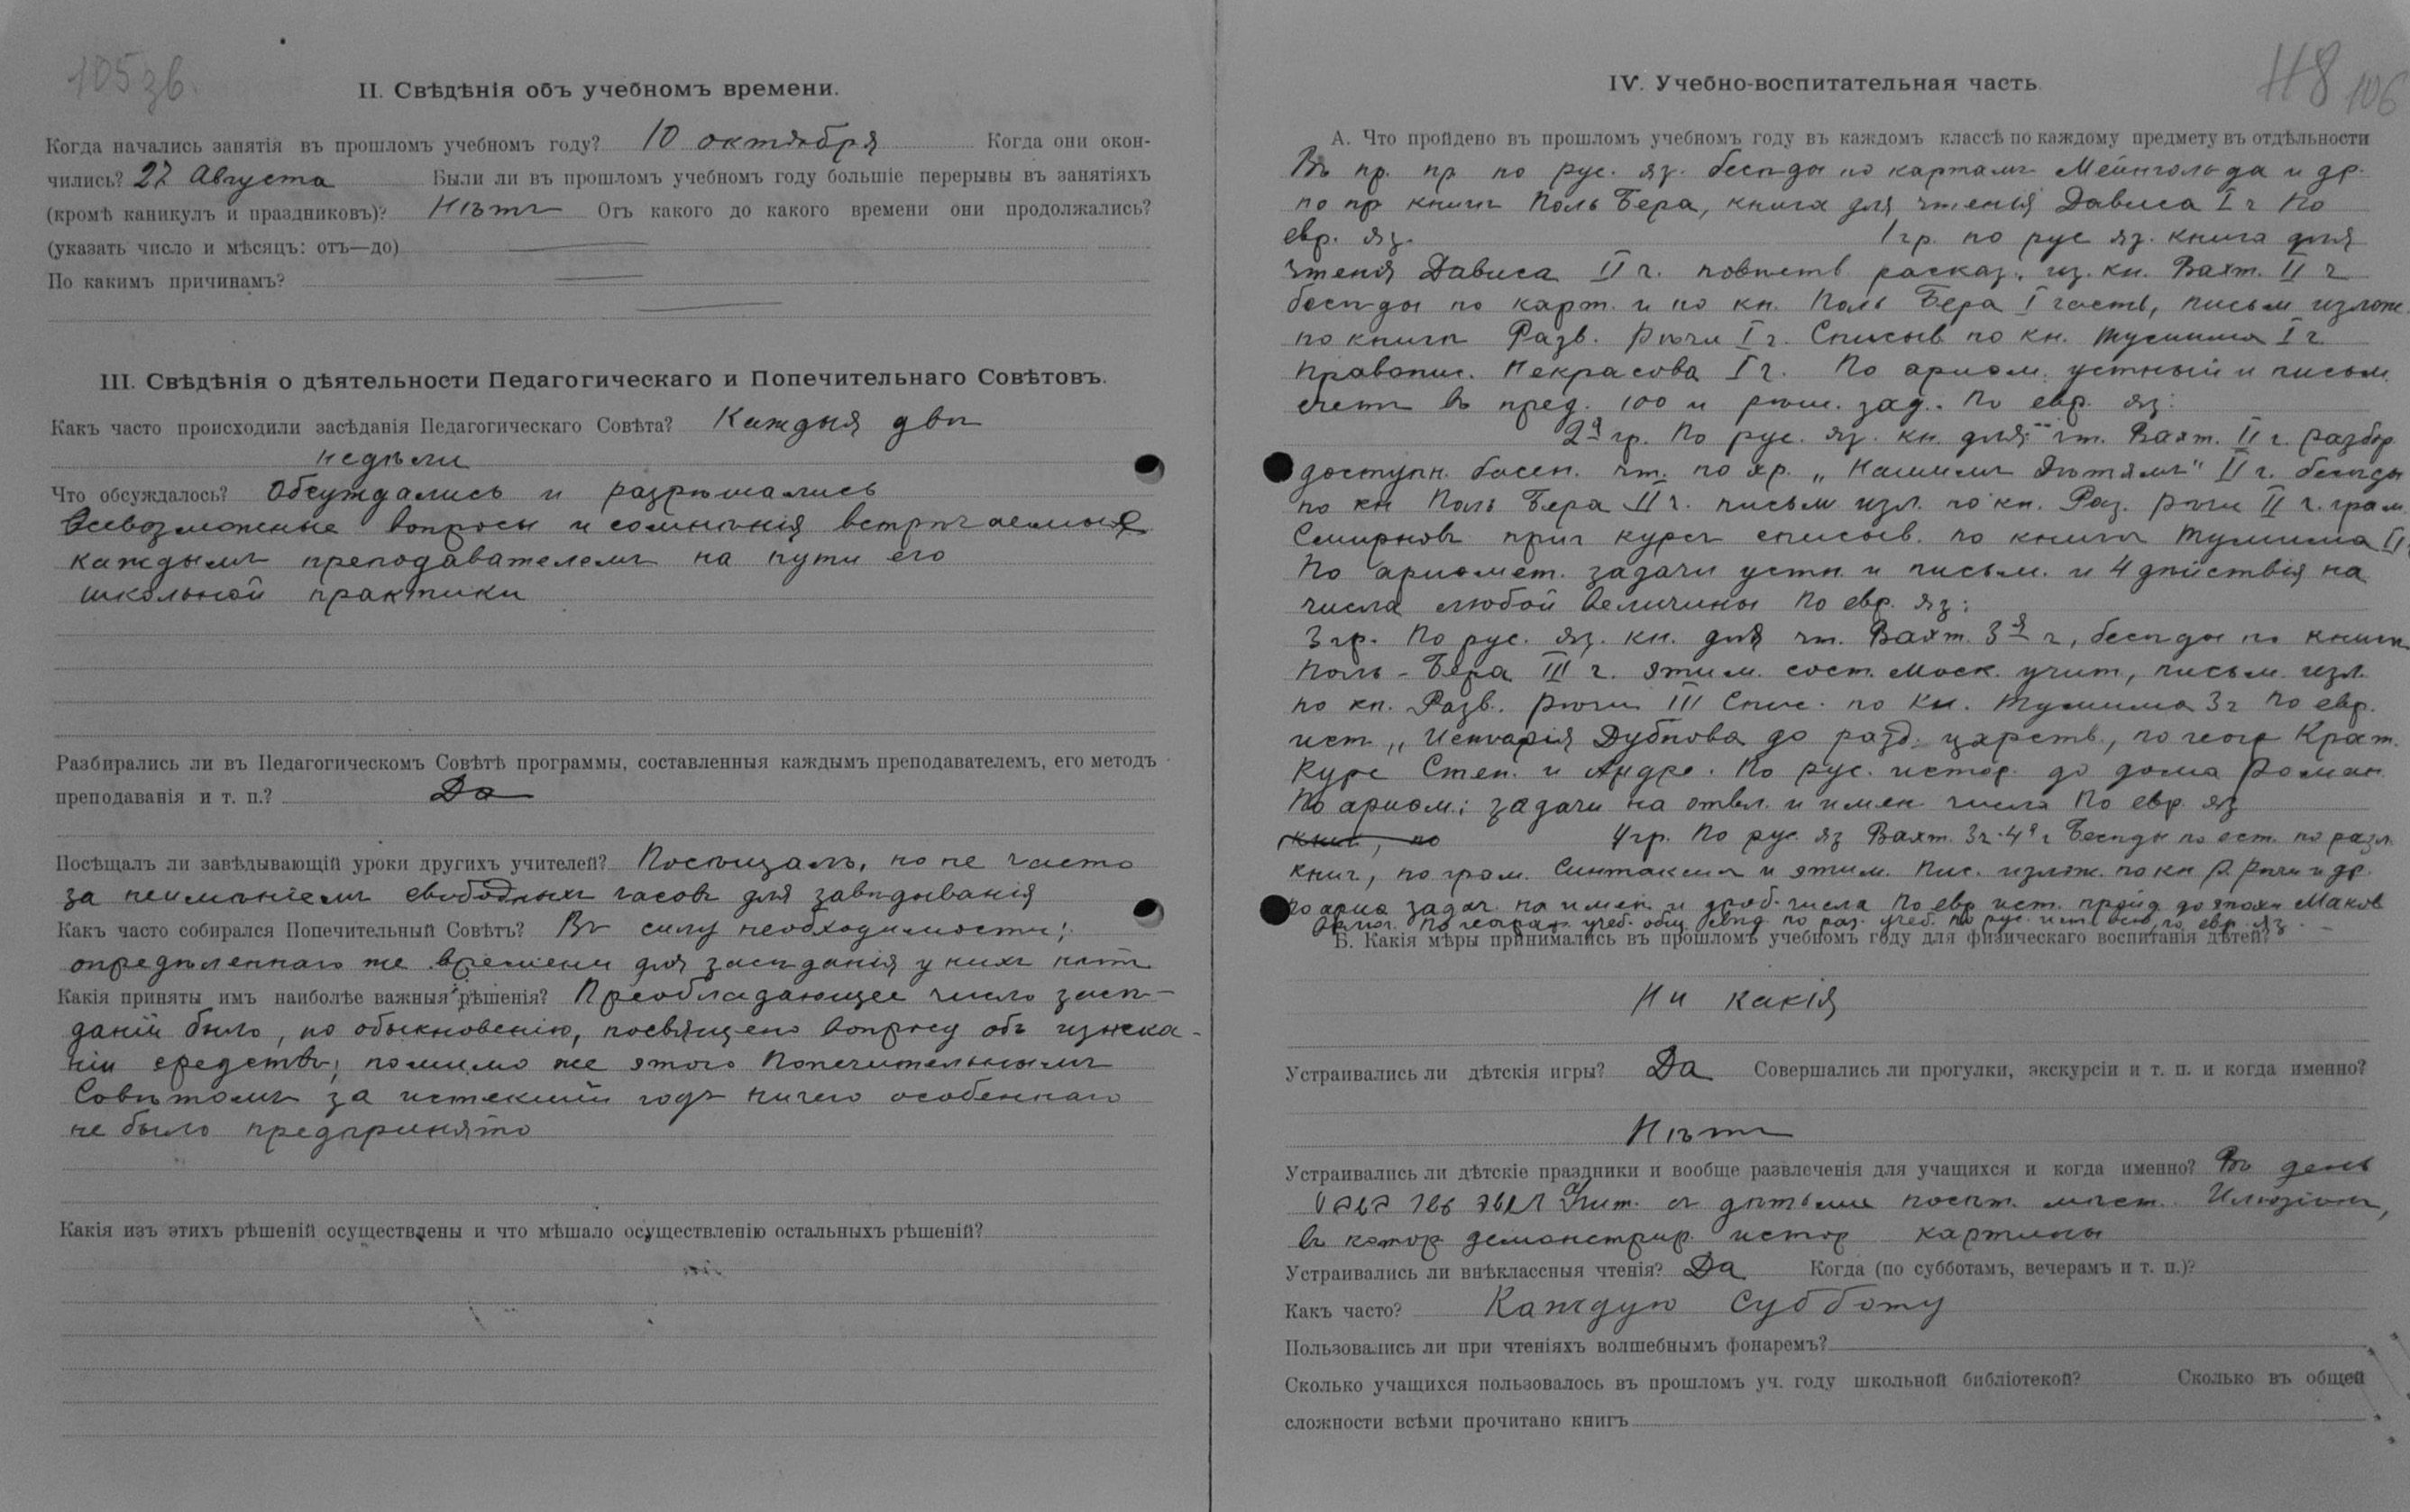 105 зв.
II. Свѣдѣнія объ учебномъ времени.
Когда начались занятія въ прошломъ учебномъ году? 10 октября Когда они окон-
чились? 27 Августа Были ли въ прошломъ учебномъ году большіе перерывы въ занятіяхъ
(кромѣ каникулъ и праздниковъ)? Нѣтъ Отъ какого до какого времени они продолжались?
(указать число и мѣсяцъ: отъ—до)
По какимъ причинамъ?
III. Свѣдѣнія о дѣятельности Педагогическаго и Попечительнаго Совѣтовъ.
Какъ часто происходили засѣданія Педагогическаго Совѣта? Каждыя двѣ
недѣли
Что обсуждалось? Обсуждались и разрѣшались
всевозможные вопросы и сомнѣнія встрѣчаемые
каждымъ преподавателемъ на пути его
школьной практики
Разбирались ли въ Педагогическомъ Совѣтѣ программы, составленныя каждымъ преподавателемъ, его методъ
преподаванія и т. п.? Да
Посѣщалъ ли завѣдывающій уроки другихъ учителей? Посѣщалъ, но не часто
за неимѣніемъ свободныхъ часовъ для завѣдыванія
Какъ часто собирался Попечительный Совѣтъ? Въ силу необходимости;
опредѣленнаго же времени для засѣданія у нихъ нѣтъ
Какія приняты имъ наиболѣе важныя рѣшенія? Преобладающее число засѣ-
даній было, по обыкновенію, посвящено вопросу объ изыска-
ніи средствъ; помимо же этого Попечительнымъ
Совѣтомъ за истекшій годъ ничего особеннаго
не было предпринято
Какія изъ этихъ рѣшеній осуществлены и что мѣшало осуществленію остальныхъ рѣшеній?
118 106
IV. Учебно-воспитательная часть
А. Что пройдено въ прошломъ учебномъ году въ каждомъ классѣ по каждому предмету въ отдѣльности
Въ пр. пр по рус. яз. бесѣды по картамъ Мейнгольда и др.
по пр книгѣ Поль Бера, книга для чтенія Дависа I ч По
евр. яз. 1 гр. по рус яз. книга для
чтенія Дависа II ч. повѣств. расказ. из. кн. Вахт. II ч
бесѣды по карт. и по кн. Поль Бера I часть, письм излож.
по книгѣ Разв. Рѣчи I ч. Списыв. по кн. Тумима I ч.
Правопис. Некрасова I ч. По ариѳм. устный и письм.
счетъ въ пред. 100 и рѣш. зад. По евр. яз:
2я гр. По рус. яз. кн. для чт. Вахт. II ч. разбор
доступн. басен. чт. по хр. „Нашимъ Дѣтямъ" II ч. бесѣды
по кн Поль Бера II ч. письм изл. по кн. Раз. рѣчи II ч. грам.
Смирновъ приг курсъ списыв. по книгѣ Тумима II
По ариѳмет. задачи устн. и письм. и 4 дѣйствія на
числа любой величины По евр. яз:
3 гр. По рус. яз. кн. для чт. Вахт. 3я ч, бесѣды по книгѣ
Поль-Бера III ч. этим. сост. Моск. учит, письм. изл.
по кн. Разв. рѣчи III Спис. по Кн. Тумима 3 ч По евр.
ист „Исторія Дубнова до разд. царств., по геогр Крат.
Курс Степ. и Андре. По рус. истор. до дома Роман.
По ариѳм.: задачи на отвл. и имен числа По евр. яз
4 гр. По рус. яз Вахт. 3ч. 4я ч Бесѣды по ест. по разл.
книг, по грам. Синтаксисъ и этим. Пис. излож. по кн Р. рѣчи и др.
По ариѳ задач. на имен. и дроб. числа По евр ист. пройд. до эпохи Маков
Б. Какія мѣры принимались въ прошломъ учебномъ году для физическаго воспитанія дѣтей?
Ни какія
Устраивались ли дѣтскія игры? Да Совершались ли прогулки, экскурсіи и т. п. и когда именно?
Нѣтъ
Устраивались ли дѣтскіе праздники и вообще развлеченія для учащихся и когда именно? Въ день
учит. съ дѣтьми посѣт. мѣст. Илюзіонъ,
въ котор демонстрир. истор картины
Устраивались ли внѣклассныя чтенія? Да Когда (по субботамъ, вечерамъ и т. п.)?
Какъ часто? Каждую Субботу
Пользовались ли при чтеніяхъ волшебнымъ фонаремъ?
Сколько учащихся пользовалось въ прошломъ уч. году школьной библіотекой? Сколько въ общей
сложности всѣми прочитано книгъ